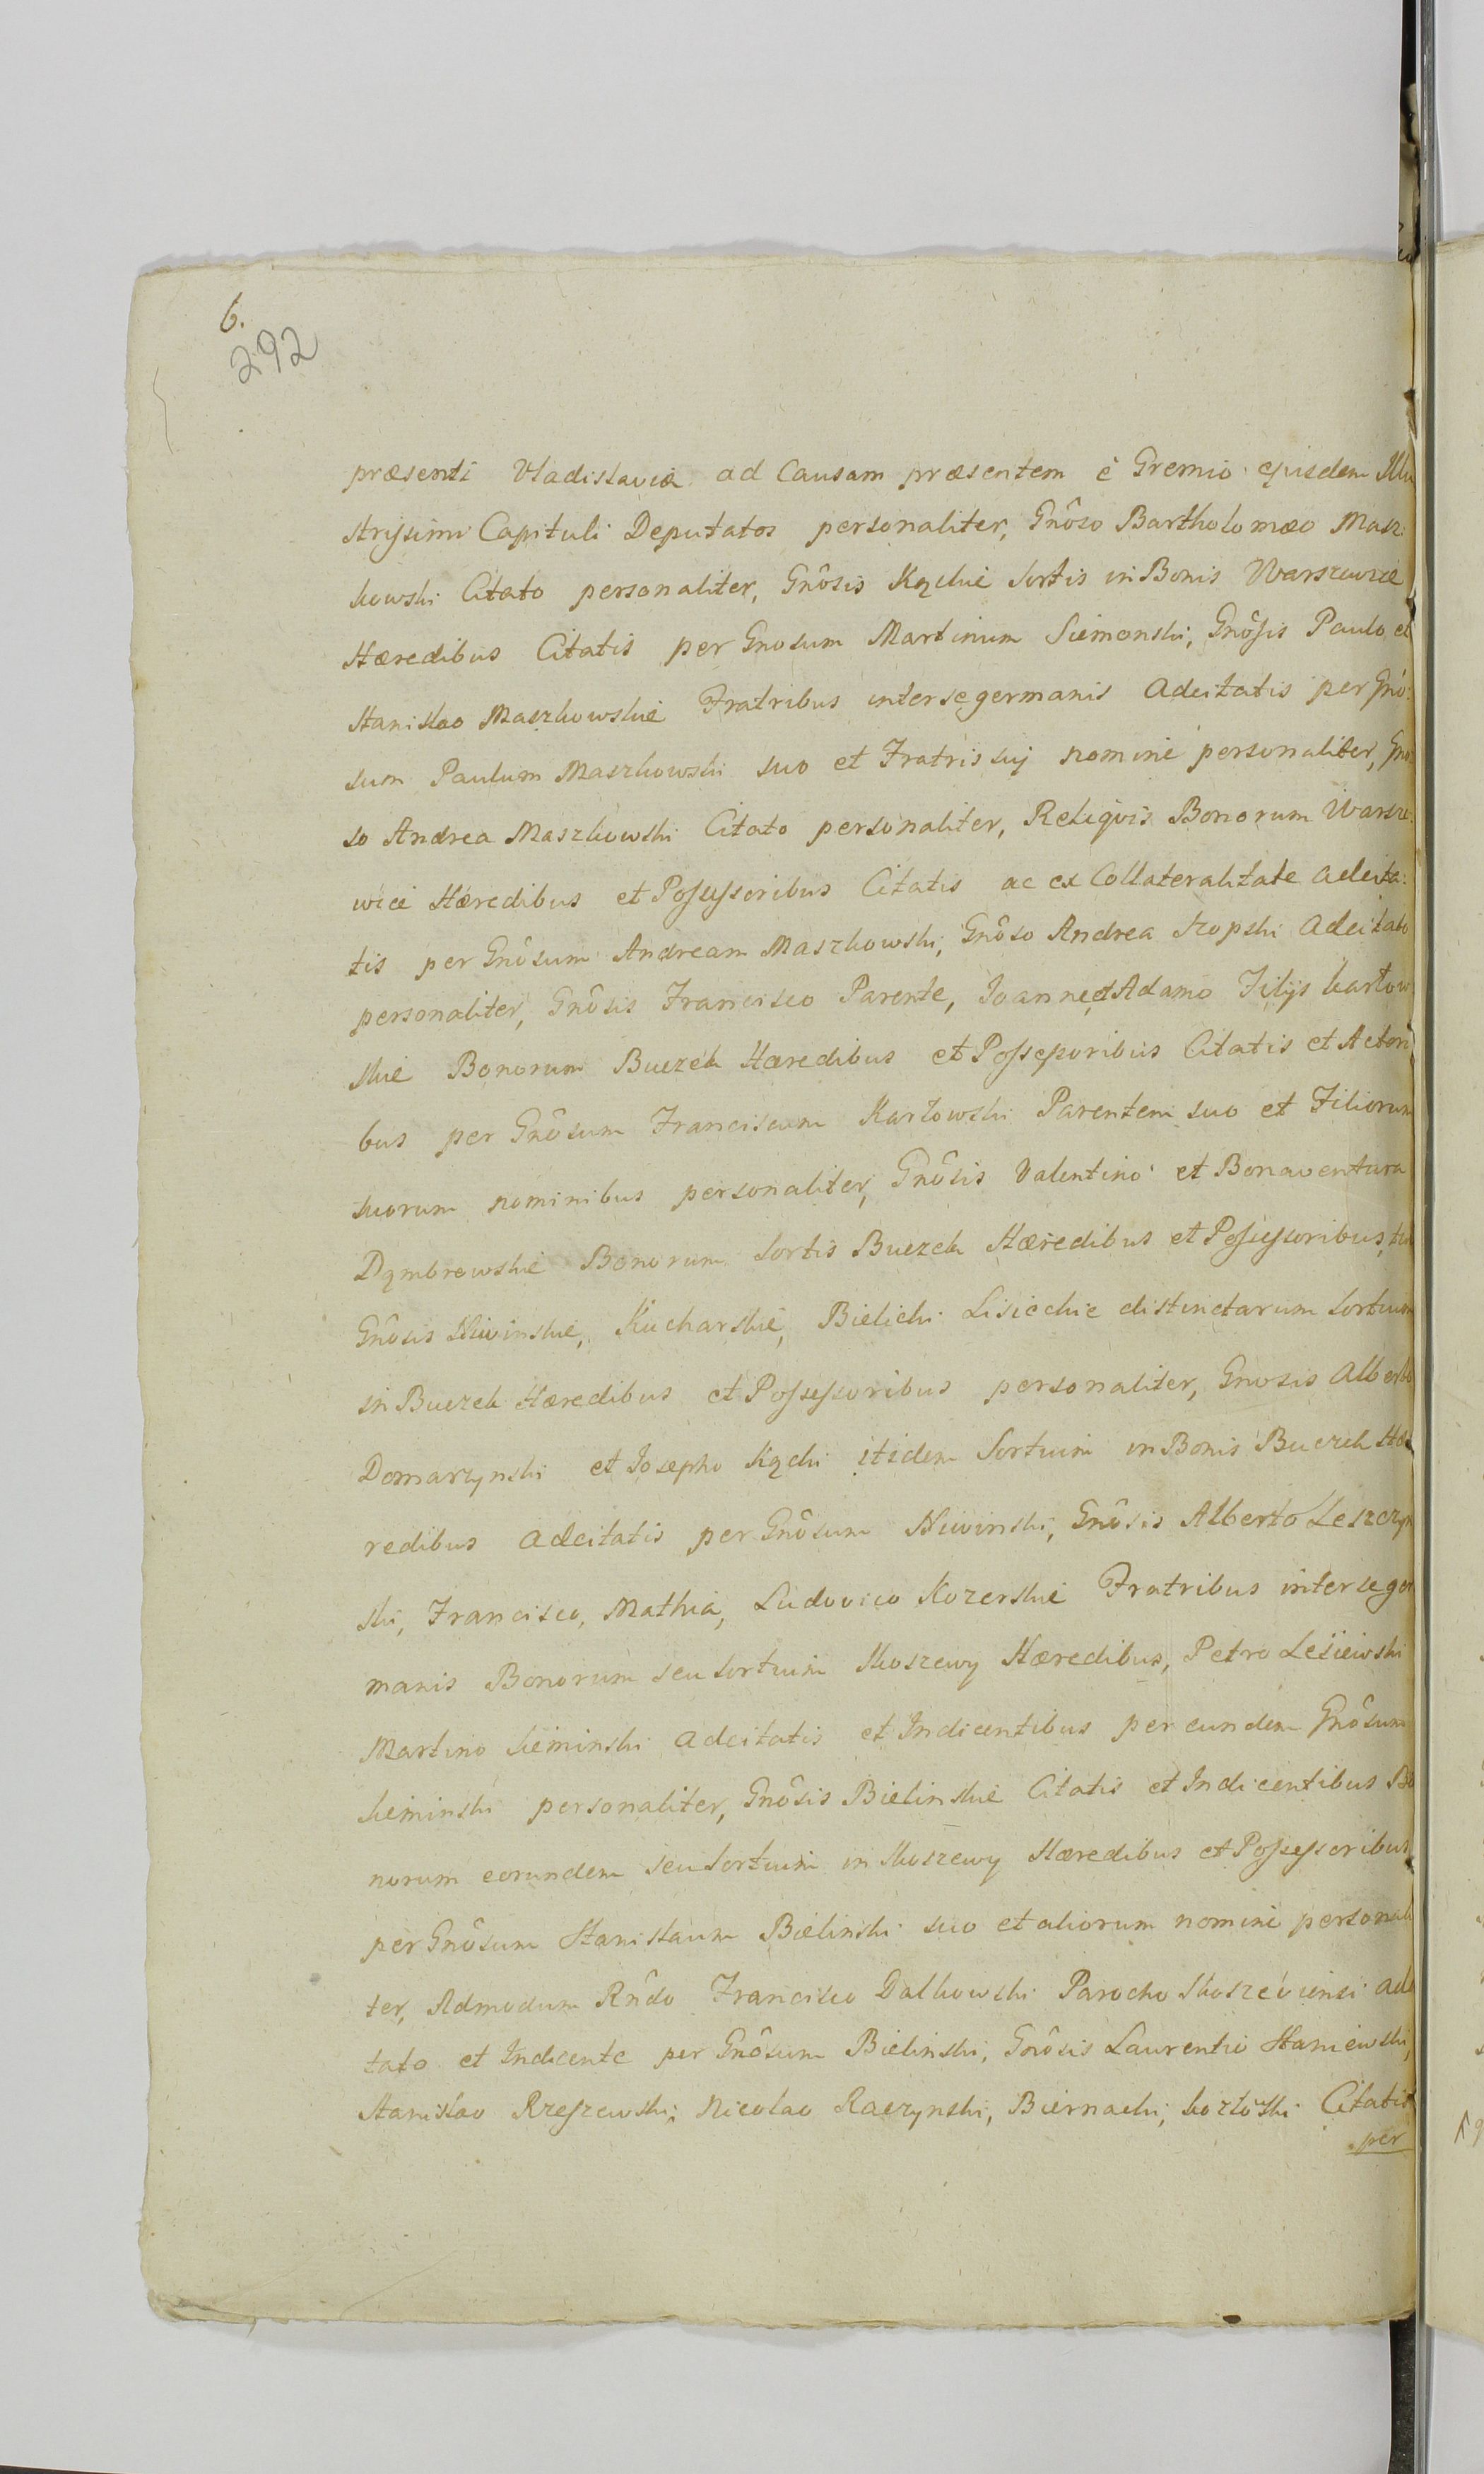 6.
292
præsenti Vladislaviæ ad Causam præsentem è Gremio ejusdem Illu
strissimi Capituli Deputatos personaliter, Gnôso Bartholomæo Masz:
kowski Citato personaliter, Gnôsis Kączkie Sortis in Bonis Warszewice
Hæredibus Citatis per Gnosum Martinum Siemonski, Gnôsis Paulo et
Stanislao Maszkowskie Fratribus inter se germanis Adcitatis per Gnô:
sum Paulum Maszkowski suo et Fratris suj nomine personaliter, Gnô:
so Andrea Maszkowski Citato personaliter, Reliqvis Bonorum Warsze:
wice Hæredibus et Possessoribus Citatis ac ex Collateralitate adcita:
tis per Gnôsum Andream Maszkowski, Gnôso Andrea Stopski Adcitato
personaliter, Gnôsis Francisco Parente, Joanne et Adamo Filijs Karłow
skie Bonorum Buczek Hæredibus et Possessoribus Citatis et Actori
bus per Gnôsum Franciscum Karłowski Parentem suo et Filiorum
suorum nominibus personaliter, Gnôsis Valentino et Bonaventura
Dąmbrowskie Bonorum Sortis Buczek Hæredibus et Possessoribus,
Gnôsis Niwinskie, Kucharskie, Bielicki Lisieckie distinctarum Sortium
in Buczek Hæredibus et Possessoribus personaliter, Gnosis Alberto
Domarzynski et Josepho Kącki itidem Sortium in Bonis Buczek Hæ
redibus Adcitatis per Gnôsum Niwinski, Gnôsis Alberto Leszczyn
ski, Francisco, Mathia, Ludovico Kozerskie Fratribus inter se ger
manis Bonorum seu Sortium Skoszewy Hæredibus, Petro Lesiewski
Martino Sieminski Adcitatis et Indicentibus per eundem Gnôsum
Sieminski personaliter, Gnôsis Bielinskie Citatis et Indicentibus Bo
norum eorundem seu Sortium in Skoszewy Hæredibus et Possessoribus
per Gnôsum Stanislaum Bielinski suo et aliorum nomine personali
ter, Admodum Rndo Francisco Dalkowski Parocho Skoszeviensi adci
tato et Indicente per Gnôsum Bielinski, Gnôsis Laurentio Staniewski,
Stanislao Rzeszewski, Nicolao Raczynski, Biernacki, Kozłoski Citatis
per